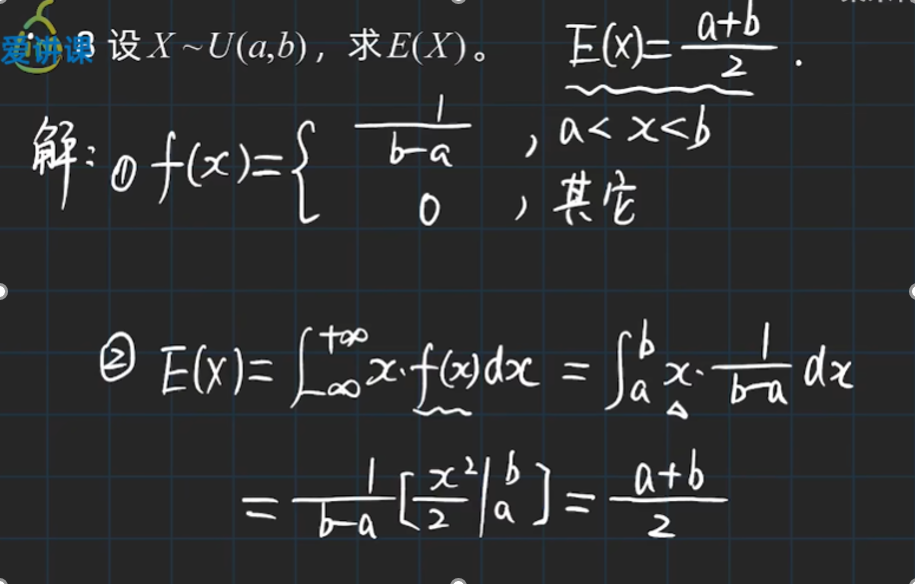 爱讲课
3 设X~U(a,b)，求E(X)。 E(X)=\frac{a+b}{2}.
解：① f(x)={ \frac{1}{b-a}，a<x<b
0，其它
② E(X)=∫_{-∞}^{+∞}x·f(x)dx=∫_a^b x·\frac{1}{b-a}dx
=\frac{1}{b-a}[\frac{x^2}{2}|_a^b]=\frac{a+b}{2}